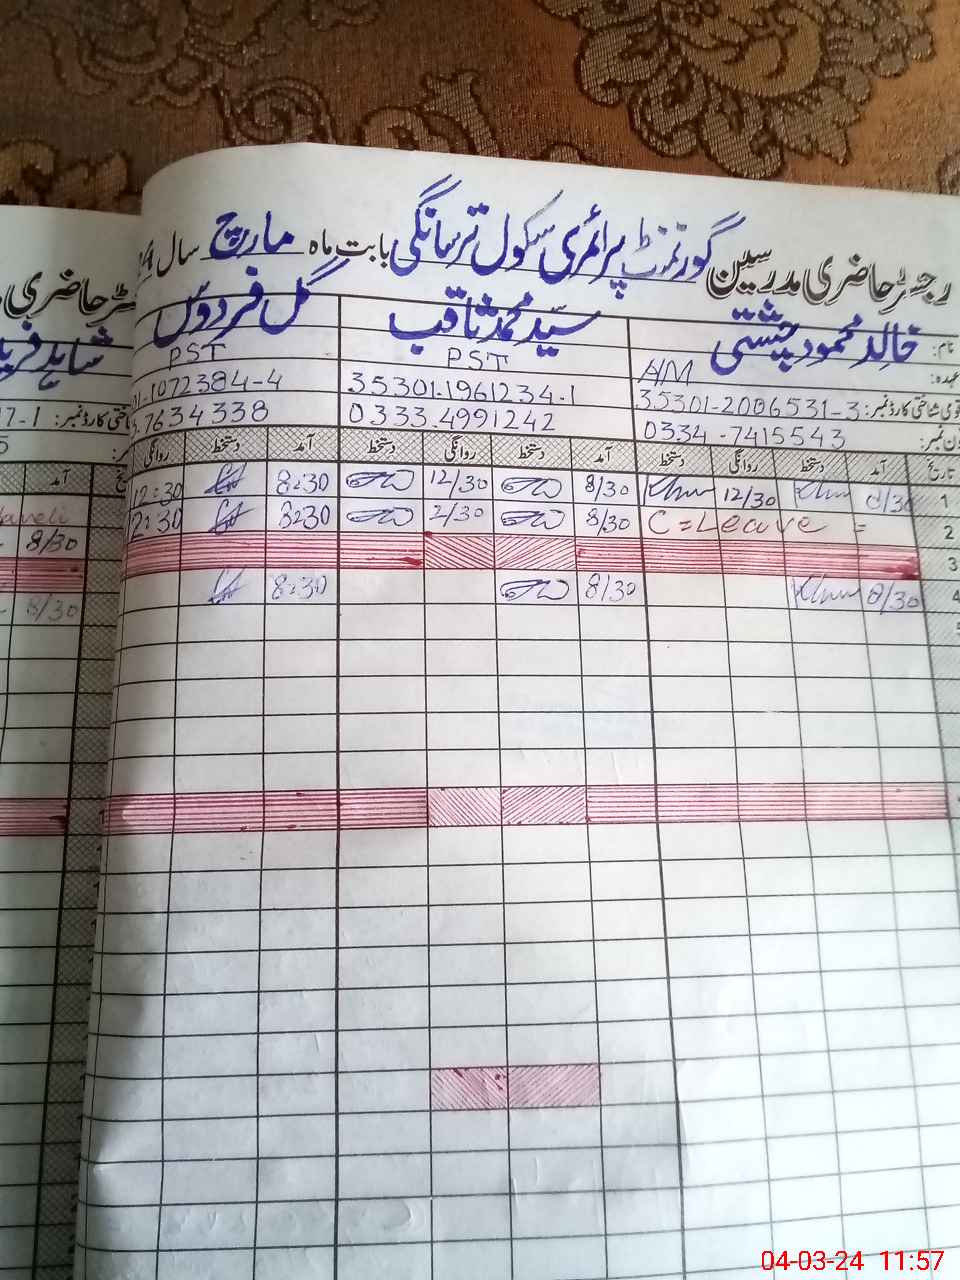 رجسٹر حاضری مدرسین گورنمنٹ پرائمری سکول ترسانگی بابت ماہ مارچ سال
نام: خالد محمود چشتی سید محمد ثاقب گل فردوس
عہدہ: AM PST PST
قومی شناختی کارڈ نمبر: 35301-2006531-3 35301-1961234-1 1072384-4
فون نمبر: 0334-7415543 0333.4991242 7634338
تاریخ آمد دستخط روانگی دستخط آمد دستخط روانگی دستخط آمد دستخط روانگی
1 8/30 12/30 8/30 12/30 8:30 12:30
2 C=Leave = 8/30 2/30 8:30 12:30
3
4 8/30 8/30 8:30
حاضری
شاہد
ختی کارڈ نمبر: 7-1
آمد
8/30
8/30
04-03-24 11:57